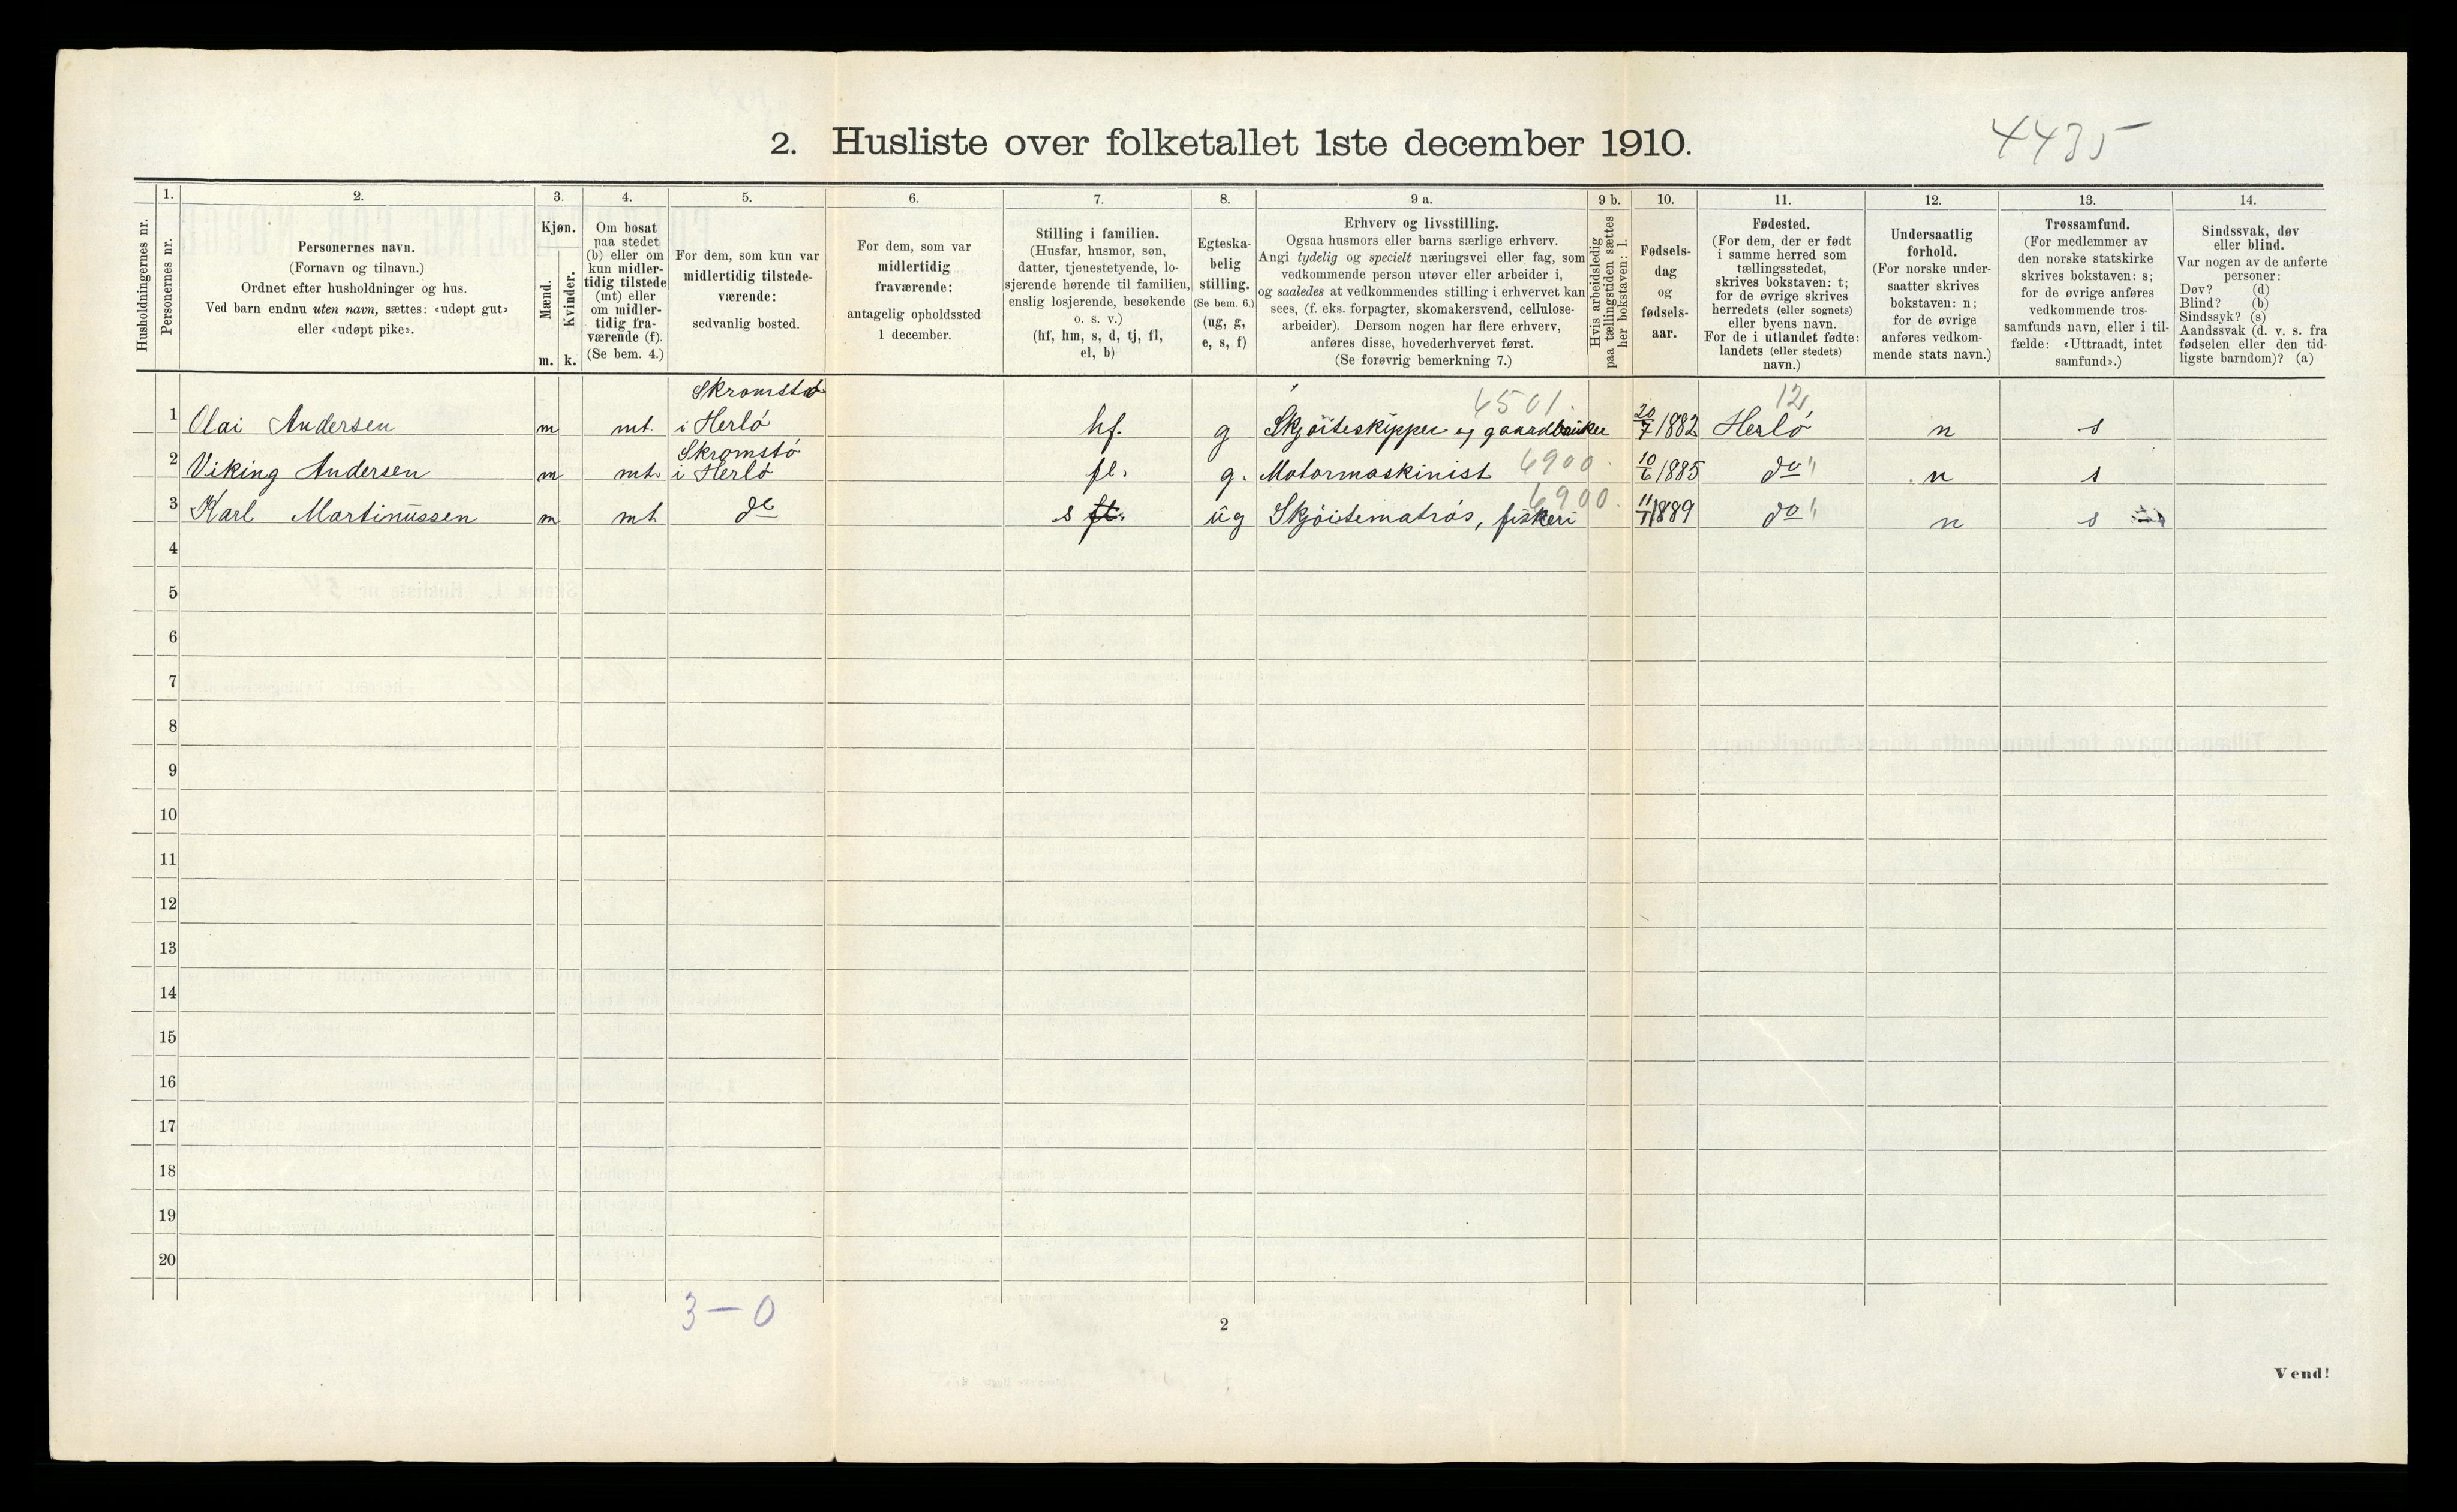 2. Husliste over folketallet 1ste december 1910.
4435
Husholdningernes nr.
1.
Personernes nr.
2.
Personernes navn.
(Fornavn og tilnavn.)
Ordnet efter husholdninger og hus.
Ved barn endnu uten navn, sættes: «udøpt gut»
eller «udøpt pike».
3.
Kjøn.
Mænd.
Kvinder.
m. k.
4.
Om bosat
paa stedet
(b) eller om
kun midler-
tidig tilstede
(mt) eller
om midler-
tidig fra-
værende (f).
(Se bem. 4.)
5.
For dem, som kun var
midlertidig tilstede-
værende:
sedvanlig bosted.
6.
For dem, som var
midlertidig
fraværende:
antagelig opholdssted
1 december.
7.
Stilling i familien.
(Husfar, husmor, søn,
datter, tjenestetyende, lo-
sjerende hørende til familien,
enslig losjerende, besøkende
o. s. v.)
(hf, hm, s, d, tj, fl,
el, b)
8.
Egteska-
belig
stilling.
(Se bem. 6.)
(ug, g,
e, s, f)
9 a.
Erhverv og livsstilling.
Ogsaa husmors eller barns særlige erhverv.
Angi tydelig og specielt næringsvei eller fag, som
vedkommende person utøver eller arbeider i,
og saaledes at vedkommendes stilling i erhvervet kan
sees, (f. eks. forpagter, skomakersvend, cellulose-
arbeider). Dersom nogen har flere erhverv,
anføres disse, hovederhvervet først.
(Se forøvrig bemerkning 7.)
9 b.
Hvis arbeidsledig
paa tællingstiden sættes
her bokstaven: l.
10.
Fødsels-
dag
og
fødsels-
aar.
11.
Fødested.
(For dem, der er født
i samme herred som
tællingsstedet,
skrives bokstaven: t;
for de øvrige skrives
herredets (eller sognets)
eller byens navn.
For de i utlandet fødte:
landets (eller stedets)
navn.)
12.
Undersaatlig
forhold.
(For norske under-
saatter skrives
bokstaven: n;
for de øvrige
anføres vedkom-
mende stats navn.)
13.
Trossamfund.
(For medlemmer av
den norske statskirke
skrives bokstaven: s;
for de øvrige anføres
vedkommende tros-
samfunds navn, eller i til-
fælde: «Uttraadt, intet
samfund».)
14.
Sindssvak, døv
eller blind.
Var nogen av de anførte
personer:
Døv? (d)
Blind? (b)
Sindssyk? (s)
Aandssvak (d. v. s. fra
fødselen eller den tid-
ligste barndom)? (a)
Skromstø 4501. 12
1 Olai Andersen m mt i Herlö hf. g Skjöiteskipper og gaardbruker 20/7 1882 Herlö n s
Skromstö
2 Viking Andersen m mt. i Herlö fl. g. Motormaskinist 6900. 10/6 1885 do " n s
3 Karl Martinussen m mt do s fl. ug Skjöitematros, fiskeri 6900. 11/1 1889 do " n s
4
5
6
7
8
9
10
11
12
13
14
15
16
17
18
19
20
3 – 0
2
Vend!